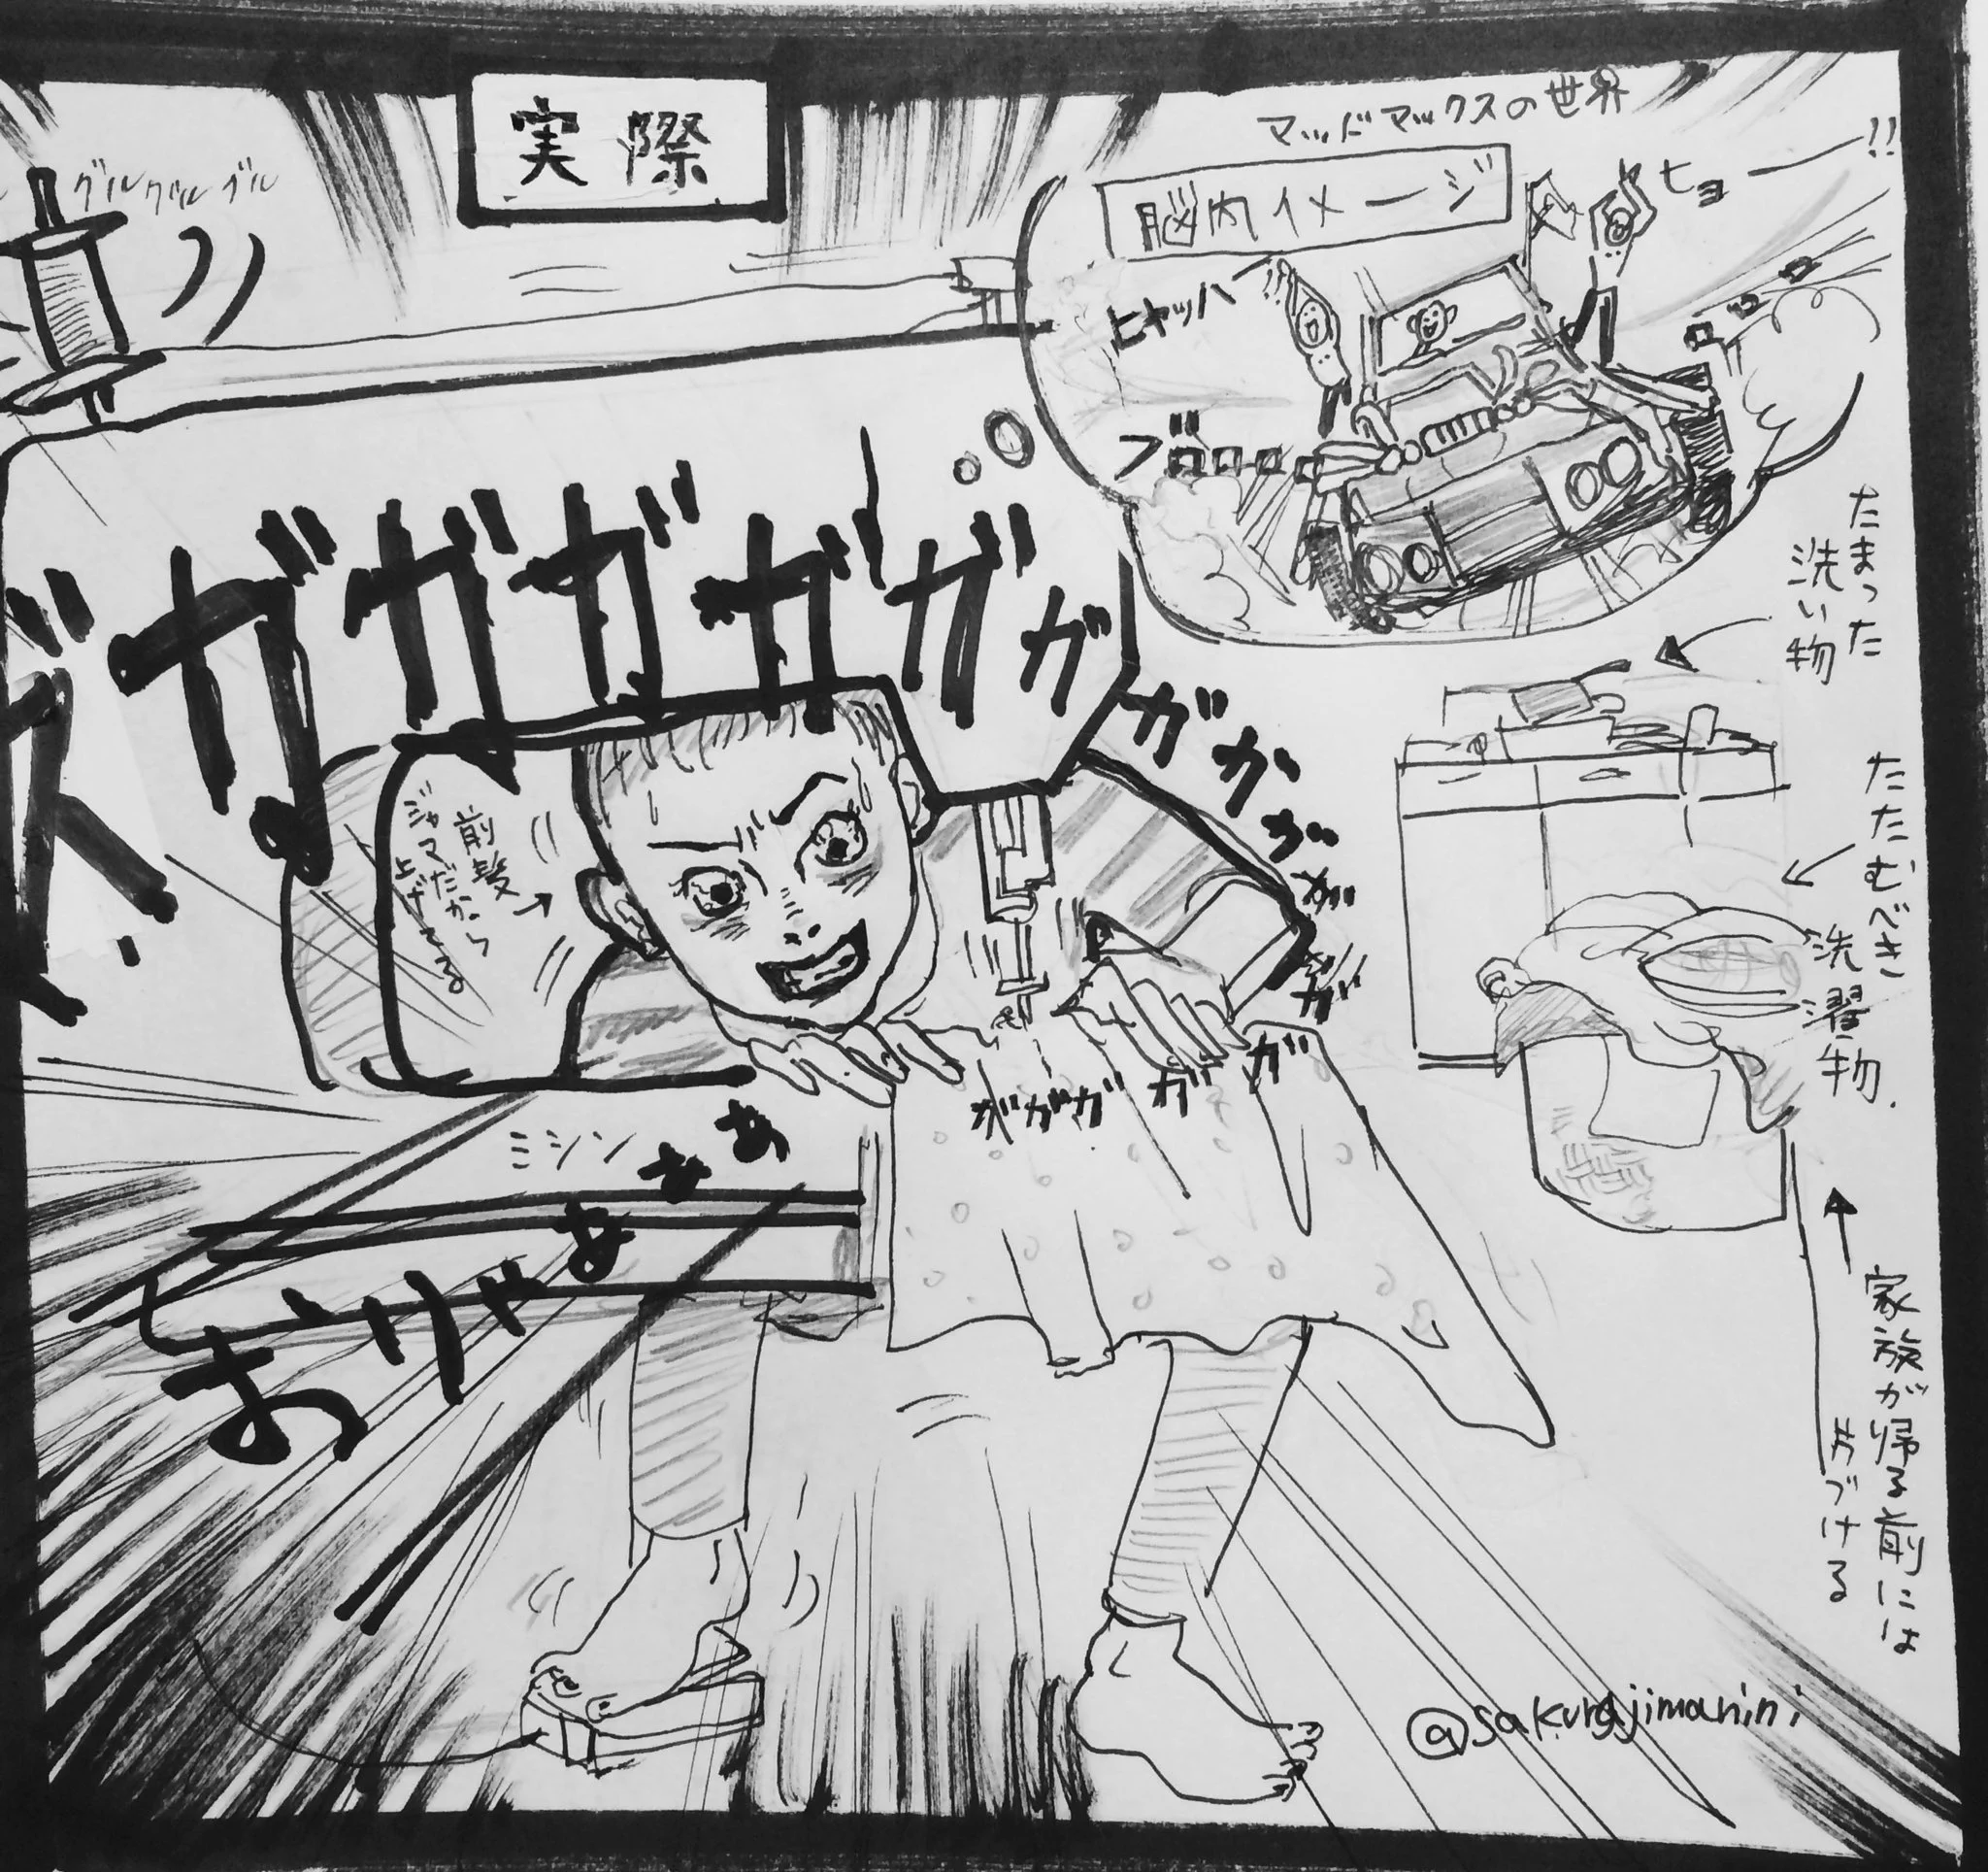 実際
マッドマックスの世界
脳内イメージ
ヒョー!!
ヒャッハー!!
グルグルグル
ズガガガガガガガガガガガガ
たまった
洗い物
前髪
ジャマだから
上げてる
たたむべき
洗濯物.
ガガガガガ
ミシン
おりゃああああ
家族が帰る前には
片づける
@sakurajimanini